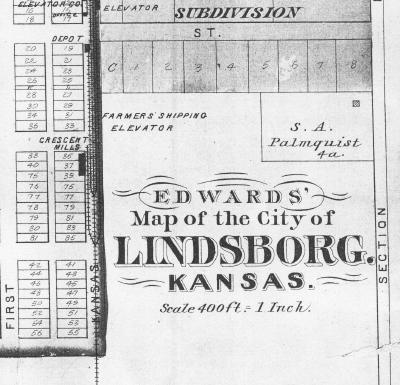 ELEVATOR CO.
OFFICE
ELEVATOR
SUBDIVISION
ST.
DEPOT
C 1 2 3 4 5 6 7 8
20 19
22 21
24 23
26 25
28 27
30 29
34 31
36 33
FARMERS' SHIPPING
ELEVATOR
S. A.
Palmquist
4a.
CRESCENT
MILLS
38 35
40 37
75 39
76 75
77 77
78 79
79 81
80 83
81 85
EDWARDS'
Map of the City of
LINDSBORG,
KANSAS.
Scale 400ft = 1 Inch.
SECTION
FIRST
KANSAS
42 41
44 43
46 45
48 47
50 49
52 51
54 53
56 55